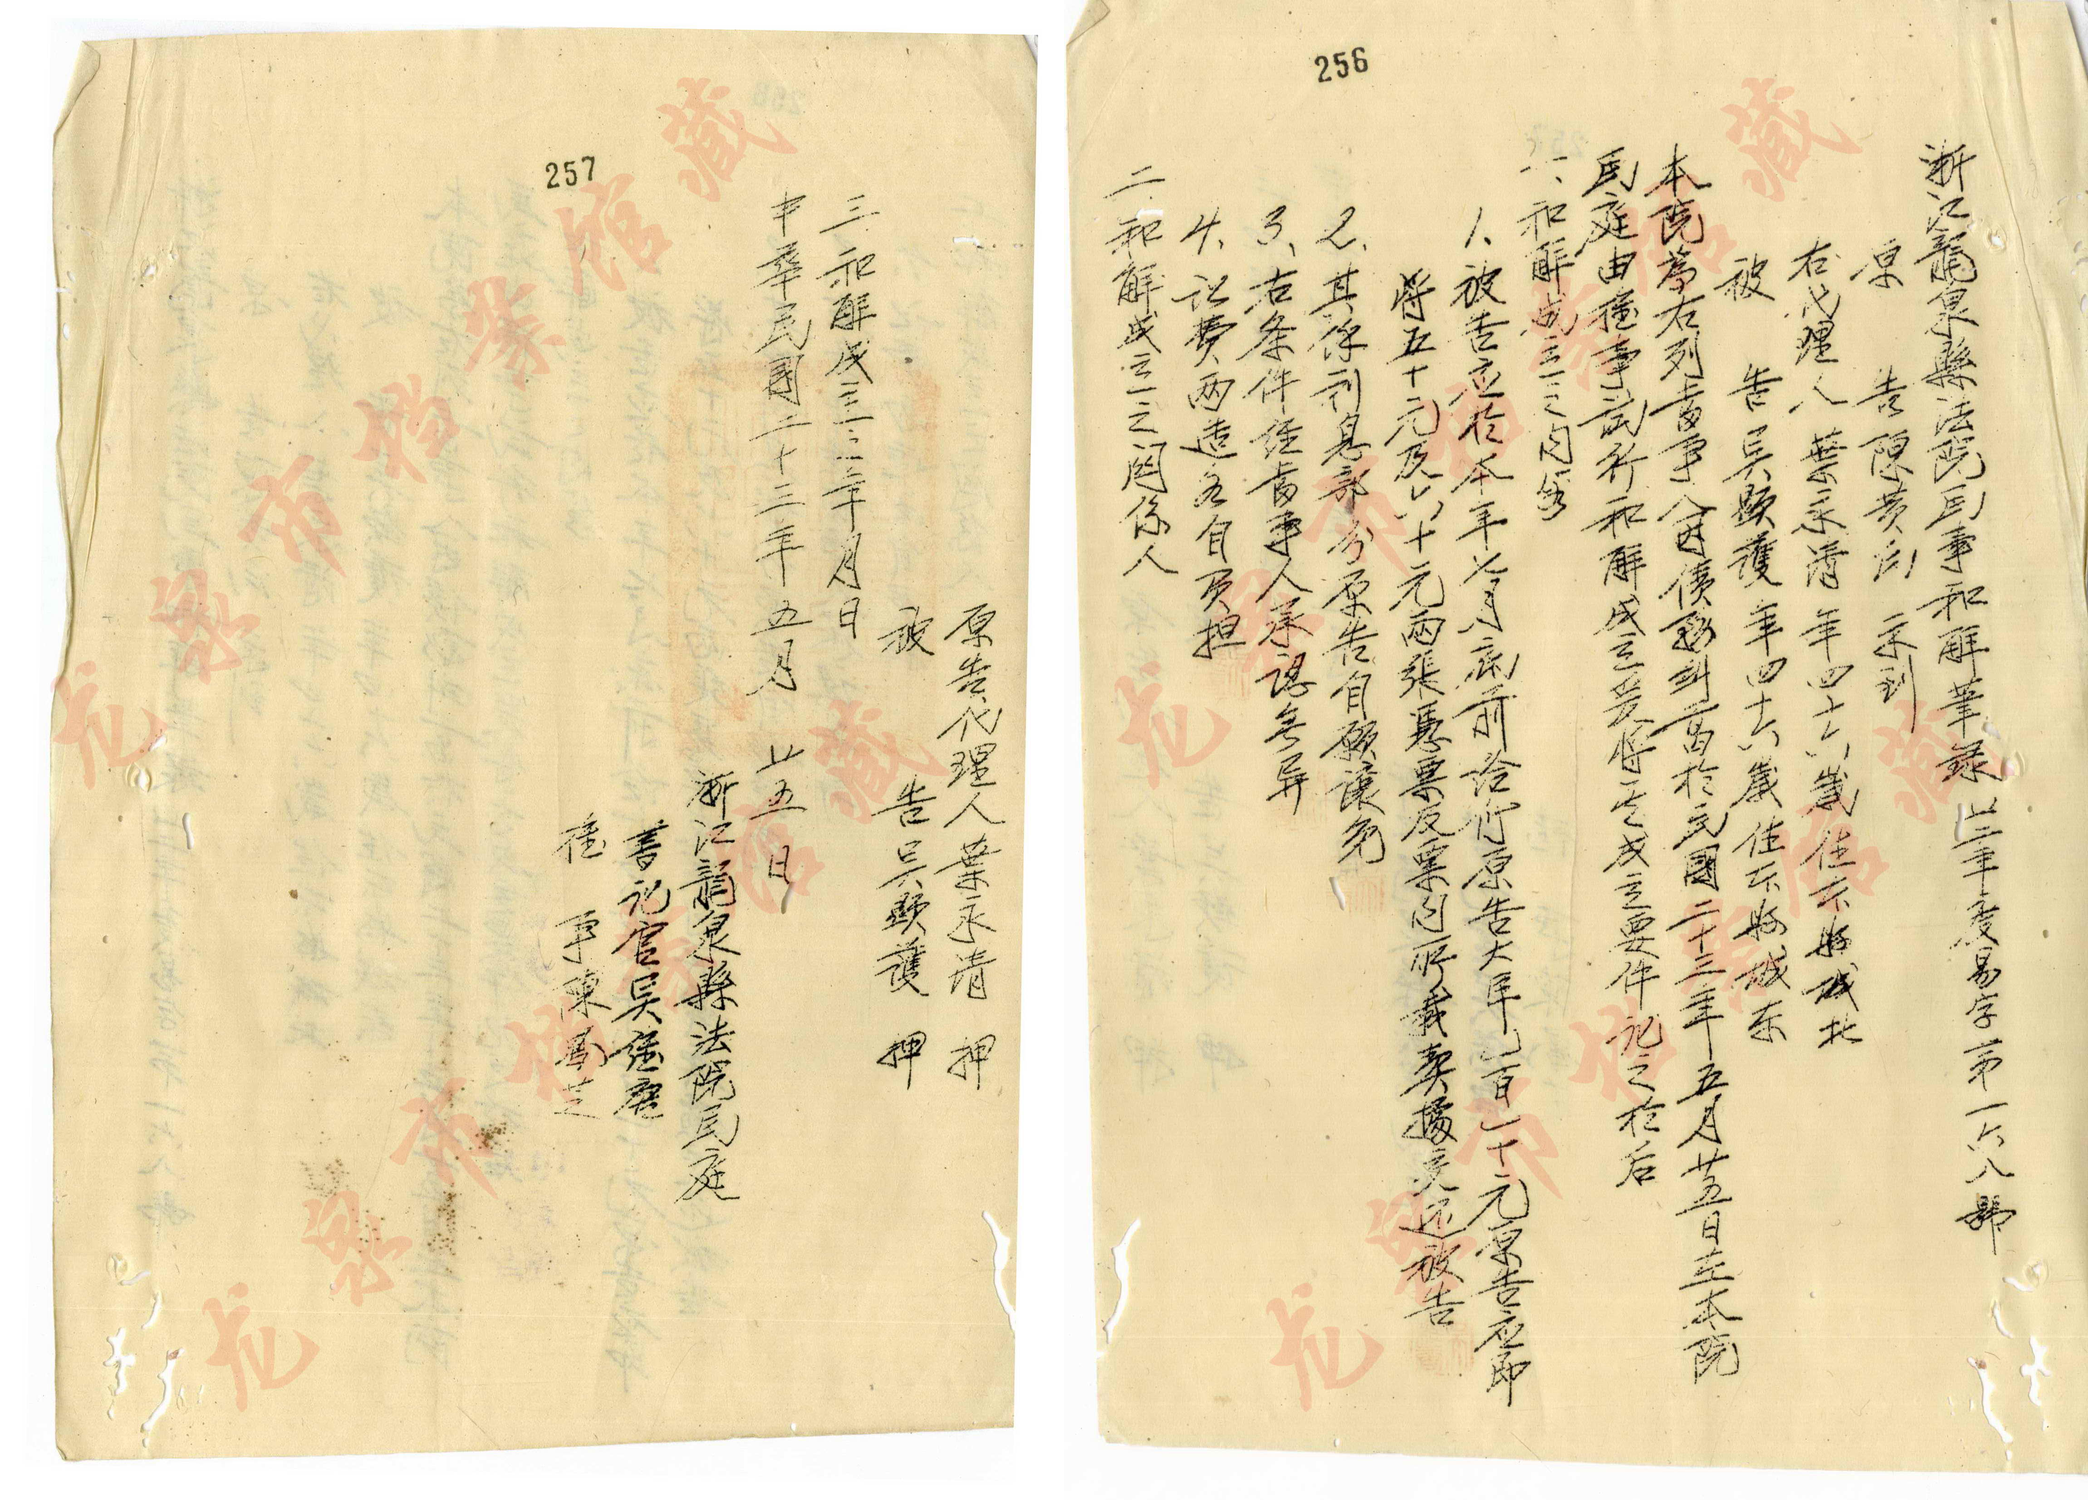 256
浙江龍泉縣法院民事和解筆錄 廿三年度易字第一六八號
原 告 未到
右代理人 葉永清 年四十六歲住本縣城北
被 告 吳顯護 年四十六歲住本縣城東
本院為右列當事人因債務糾葛於民國二十三年五月廿五日在本院
民庭由推事試行和解成立茲將其成立要件記之於后
一、和解成立之內容
1、被告應於本年 月底前給付原告大洋 百一十元原告應即
將五十元及六十元兩張憑票及票內所載契據交还被告
2、其餘利息部分原告自願讓免
3、右条件經當事人承認無異
4、訟費兩造各自負担
二、和解成立之関係人
257
原告代理人葉永清 押
被 告 吳顯護 押
三、和解成立之年月日
中華民國二十三年五月 廿五日
浙江龍泉縣法院民庭
書記官吳
推 事陳
龙泉市档案馆藏
龙泉市档案馆藏
龙泉市档案馆藏
龙泉市档案馆藏